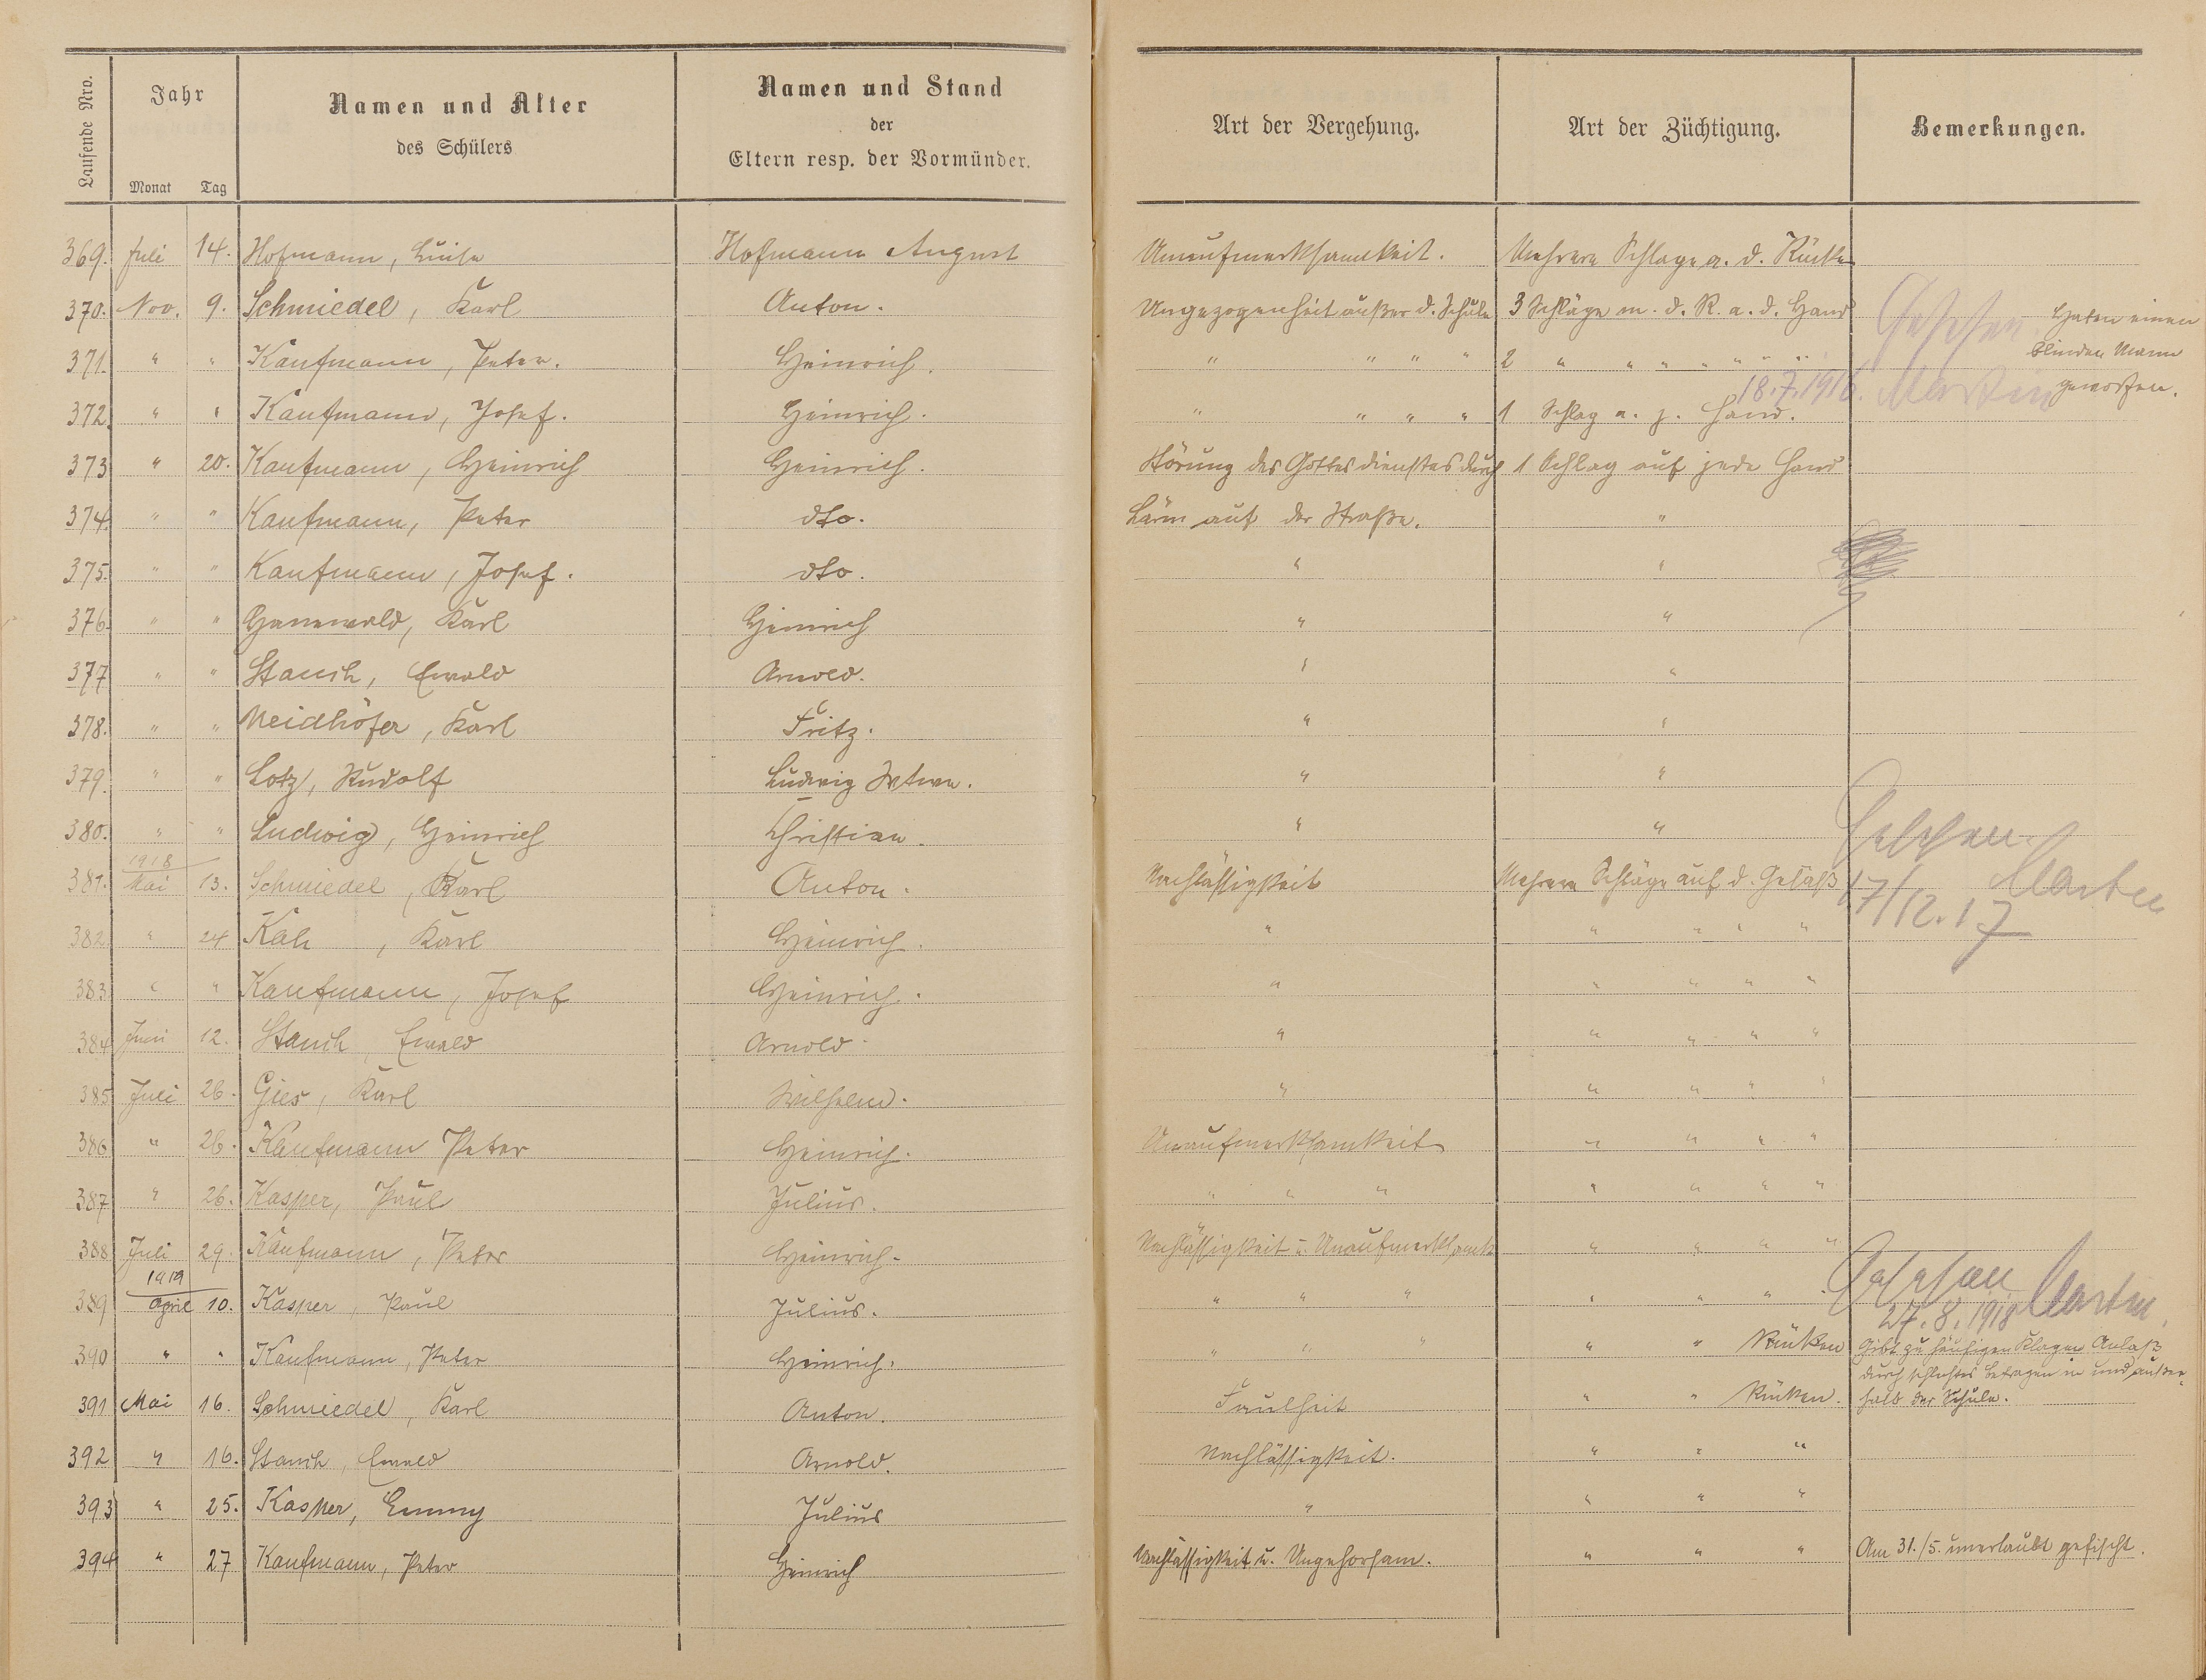 Laufende Nro.
Jahr
Monat Tag
Namen und Alter
des Schülers
Namen und Stand
der
Eltern resp. der Vormünder.
Art der Vergehung.
Art der Züchtigung.
Bemerkungen.
369. Juli 14. Hofmann, Luise Hofmann August Unaufmerksamkeit. Mehrere Schläge a. d. Rücken
370. Nov. 9. Schmiedel, Karl Anton. Ungezogenheit außer d. Schule 3 Schläge m. d. R. a. d. Hand Gesehen Haben einen
371. " " Kaufmann, Peter. Heinrich. " " " " 2 " " " " " " " blinden Mann
18.7.1916. Martin geworfen.
372. " " Kaufmann, Josef. Heinrich. " " " " 1 Schlag a. j. Hand.
373 " 20. Kaufmann, Heinrich Heinrich. Störung des Gottesdienstes durch 1 Schlag auf jede Hand
374. " " Kaufmann, Peter dto. Lärm auf der Straße. "
375. " " Kaufmann, Josef. dto. " "
376. " " Karl Heinrich " "
377 " " Stauch, Ewald Arnold. " "
378. " " Neidhöfer, Karl Fritz. " "
379. " " Lotz, Rudolf Ludwig Witwe. " "
380. " " Ludwig, Heinrich Christian. " " Gesehen.
1918
381. Mai 13. Schmiedel, Karl Anton. Nachlässigkeit Mehrere Schläge auf d. Gesäß Martin
17/12.17
382 " 24 Kah, Karl Heinrich. " " " " "
383 " " Kaufmann, Josef Heinrich. " " " " "
384 Juni 12. Stauch, Ewald Arnold " " " " "
385 Juli 26. Gies, Karl Wilhelm. " " " " "
386 " 26. Kaufmann Peter Heinrich. Unaufmerksamkeit " " " "
387 " 26. Kasper, Paul Julius. " " " " " " "
388 Juli 29. Kaufmann, Peter Heinrich. Nachlässigkeit u. Unaufmerksamk. " " " "
1919
389 April 10. Kasper, Paul Julius. " " " " " " Gesehen Martin.
27.8.1918
390 " " Kaufmann, Peter Heinrich. " " " " " Rücken Gibt zu häufigen Klagen Anlaß
durch schlechtes Betragen in und außer-
391 Mai 16. Schmiedel, Karl Anton. Faulheit " " Rücken. halb der Schule.
392 " 16. Stauch, Ewald Arnold. Nachlässigkeit. " " "
393 " 25. Kasper, Emmy Julius " " " "
394 " 27 Kaufmann, Peter Heinrich Nachlässigkeit u. Ungehorsam. " " " Am 31./5. unerlaubt gefischt.